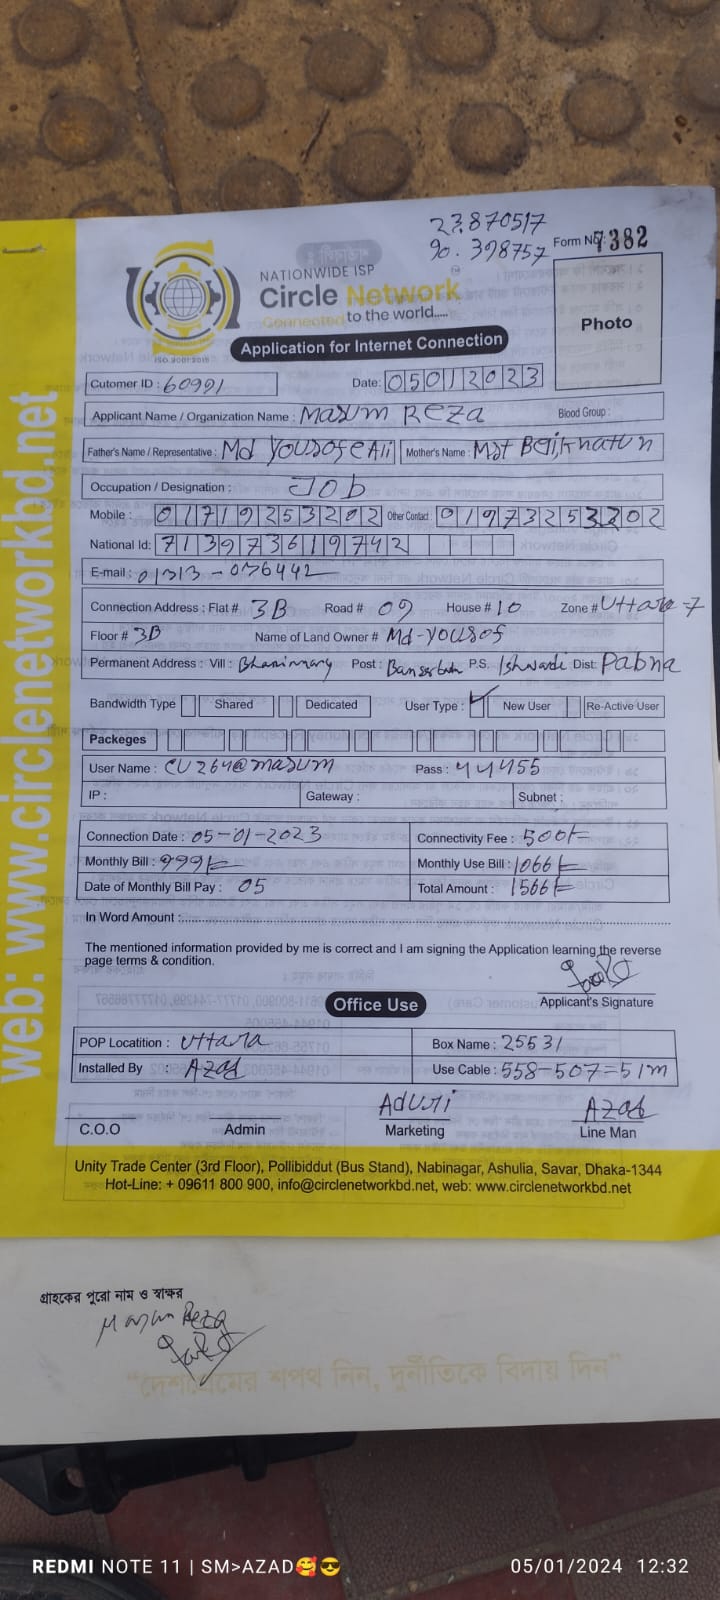 23.870517
90.398757
Form No 7382
NATIONWIDE ISP
Circle Network
Connected to the world.....
ISO 9001:2015
Photo
Application for Internet Connection
Cutomer ID : 60991 Date: 05012023
Applicant Name / Organization Name : Masum Reza Blood Group :
Father's Name / Representative : Md Yousofe Ali Mother's Name : Mst
Occupation / Designation : Job
Mobile : 01719253202 Other Contact : 01973253202
National Id: 713973619742
E-mail : 01313-036442
Connection Address : Flat # 3B Road # 09 House # 10 Zone # Uttara-7
Floor # 3B Name of Land Owner # Md-Yousof
Permanent Address : Vill : Post : P.S. Ishwardi Dist: Pabna
Bandwidth Type Shared Dedicated User Type : New User Re-Active User
Packeges
User Name : CU264@masum Pass : 44455
IP : Gateway : Subnet :
Connection Date : 05-01-2023 Connectivity Fee : 500/=
Monthly Bill : 999/= Monthly Use Bill : 1066/=
Date of Monthly Bill Pay : 05 Total Amount : 1566/=
In Word Amount :
The mentioned information provided by me is correct and I am signing the Application learning the reverse
page terms & condition.
Applicant's Signature
Office Use
POP Locatition : Uttara Box Name : 25531
Installed By : Azad Use Cable : 558-507=51m
Aduri Azad
C.O.O Admin Marketing Line Man
Unity Trade Center (3rd Floor), Pollibiddut (Bus Stand), Nabinagar, Ashulia, Savar, Dhaka-1344
Hot-Line: + 09611 800 900, info@circlenetworkbd.net, web: www.circlenetworkbd.net
web: www.circlenetworkbd.net
গ্রাহকের পুরো নাম ও স্বাক্ষর
Masum Reza
“দেশপ্রেমের শপথ নিন, দুর্নীতিকে বিদায় দিন”
REDMI NOTE 11 | SM>AZAD🥰😎 05/01/2024 12:32